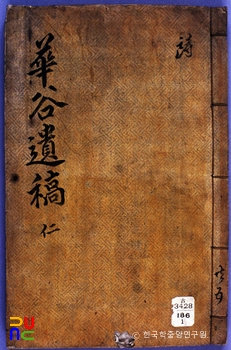 華谷遺稿
仁
詩
共五
3428
186
1
© 한국학중앙연구원